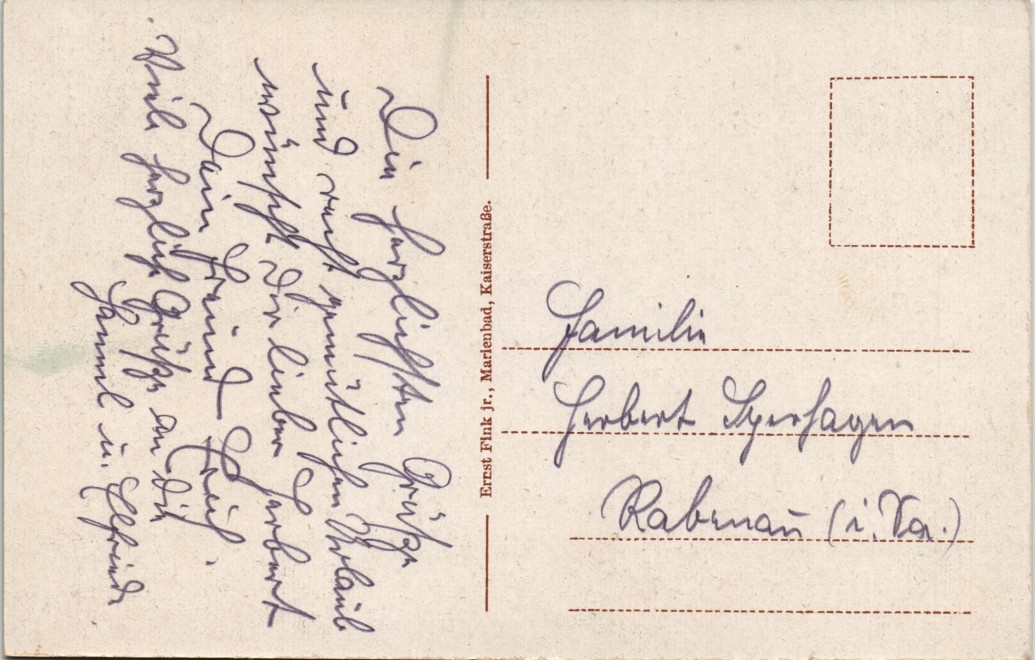 Die herzlichsten Grüße
und recht gemütlichen Urlaub
wünscht Dir lieber Herbert
Dein Freund
Viele herzliche Grüße an Dich
u. Elfriede.
Ernst Fink jr., Marienbad, Kaiserstraße.
Familie
Herbert
Rabenau (i. Sa.)